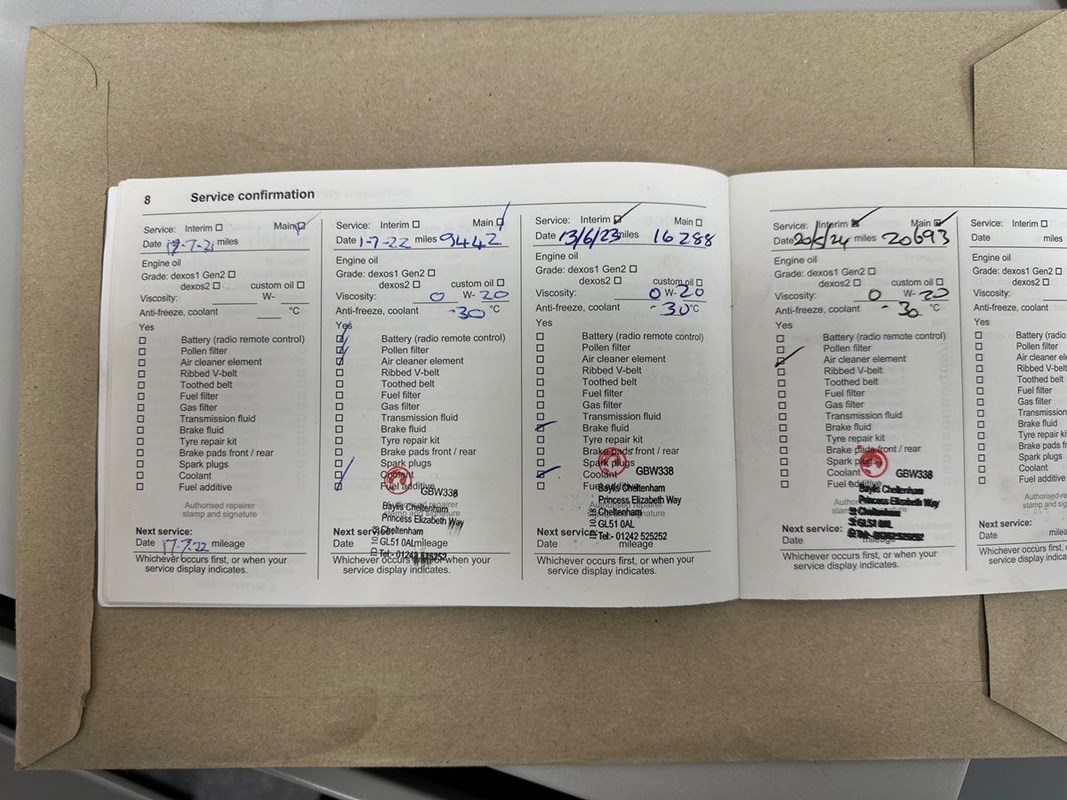 8 Service confirmation
Service: Interim Main
Date miles
Engine oil
Grade: dexos1 Gen2
dexos2 custom oil
Viscosity: W-
Anti-freeze, coolant °C
Yes
Battery (radio remote control)
Pollen filter
Air cleaner element
Ribbed V-belt
Toothed belt
Fuel filter
Gas filter
Transmission fluid
Brake fluid
Tyre repair kit
Brake pads front / rear
Spark plugs
Coolant
Fuel additive
Authorised repairer
stamp and signature
Next service:
Date 17.7.22 mileage
Whichever occurs first, or when your
service display indicates.
Service: Interim Main
Date 1-7-22 miles 9442
Engine oil
Grade: dexos1 Gen2
dexos2 custom oil
Viscosity: 0 W- 20
Anti-freeze, coolant -30 °C
Yes
Battery (radio remote control)
Pollen filter
Air cleaner element
Ribbed V-belt
Toothed belt
Fuel filter
Gas filter
Transmission fluid
Brake fluid
Tyre repair kit
Brake pads front / rear
Spark plugs
Coolant
Fuel additive
GBW338
Authorised repairer
stamp and signature
Baylis Cheltenham
Princess Elizabeth Way
Cheltenham
GL51 0AL
Tel:- 01242 525252
Next service:
Date mileage
Whichever occurs first, or when your
service display indicates.
Service: Interim Main
Date 13/6/23 miles 16288
Engine oil
Grade: dexos1 Gen2
dexos2 custom oil
Viscosity: 0 W-20
Anti-freeze, coolant -30 °C
Yes
Battery (radio remote control)
Pollen filter
Air cleaner element
Ribbed V-belt
Toothed belt
Fuel filter
Gas filter
Transmission fluid
Brake fluid
Tyre repair kit
Brake pads front / rear
Spark plugs
Coolant
Fuel additive
GBW338
Authorised repairer
stamp and signature
Baylis Cheltenham
Princess Elizabeth Way
Cheltenham
GL51 0AL
Tel:- 01242 525252
Next service:
Date mileage
Whichever occurs first, or when your
service display indicates.
Service: Interim Main
Date 20/5/24 miles 20693
Engine oil
Grade: dexos1 Gen2
dexos2 custom oil
Viscosity: 0 W- 20
Anti-freeze, coolant -30 °C
Yes
Battery (radio remote control)
Pollen filter
Air cleaner element
Ribbed V-belt
Toothed belt
Fuel filter
Gas filter
Transmission fluid
Brake fluid
Tyre repair kit
Brake pads front / rear
Spark plugs
Coolant
Fuel additive
GBW338
Baylis Cheltenham
Princess Elizabeth Way
Cheltenham
GL51 0AL
Next service:
Date mileage
Whichever occurs first, or when your
service display indicates.
Service: Interim
Date miles
Engine oil
Grade: dexos1 Gen2
dexos2
Viscosity:
Anti-freeze, coolant
Yes
Battery (radio
Pollen filter
Air cleaner ele
Ribbed V-belt
Toothed belt
Fuel filter
Gas filter
Transmission
Brake fluid
Tyre repair kit
Brake pads fr
Spark plugs
Coolant
Fuel additive
Authorised re
stamp and sig
Next service:
Date milea
Whichever occurs first,
service display indic